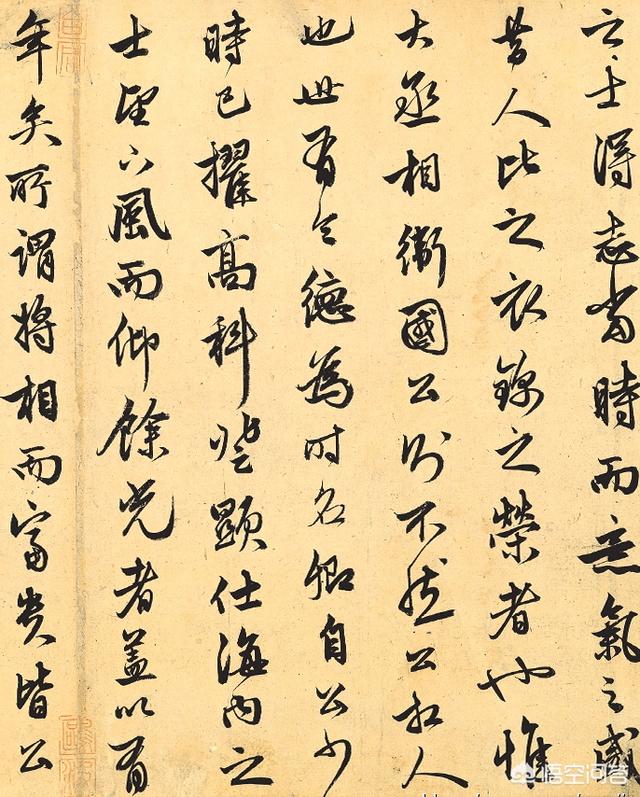 之士得志當時而意氣之盛
昔人比之衣錦之榮者也惟
大丞相衛國公則不然公相人
也世有令德為時名卿自公少
時已擢高科登顯仕海內之
士望下風而仰餘光者蓋以有
年矣所謂將相而富貴皆公
悟空问答